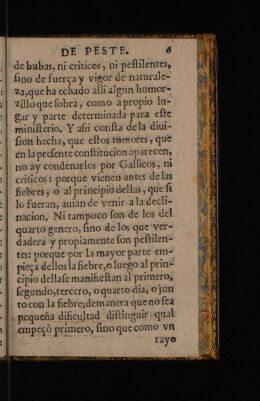 DE PESTE. 6
de bubas, ni criticos, ni pestilentes,
sino de fuerça y vigor de naturale-
za, que ha echado alli algun humor-
zillo que sobra, como a propio lu-
gar y parte determinada para este
ministerio. Y assi consta de la diui-
sion hecha, que estos tumores, que
en la presente constitucion aparecen,
no ay condenarlos por Gallicos, ni
criticos: porque vienen antes de las
fiebres, o al principio dellas, que si
lo fueran, auian de venir a la decli-
nacion. Ni tampoco son de los del
quarto genero, sino de los que ver-
dadera y propiamente son pestilen-
tes: porque por la mayor parte em-
pieça dellos la fiebre, o luego al prin-
cipio della se manifiestan al primero,
segundo, tercero, o quarto dia, o jun
to con la fiebre; de manera que no sea
pequeña dificultad distinguir qual
empeço primero, sino que como vn
rayo